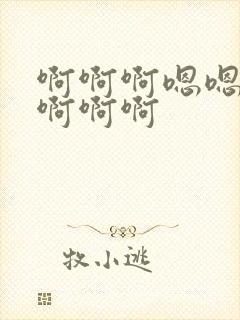 啊啊啊嗯嗯
啊啊啊
牧小逃